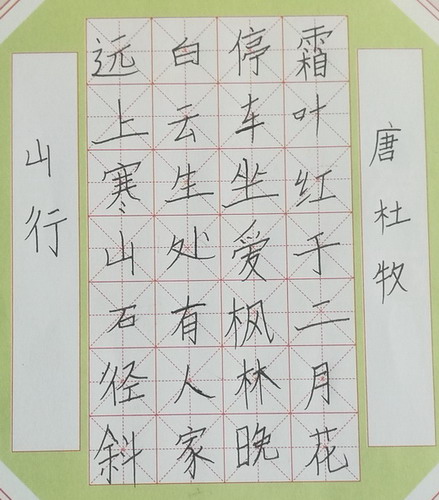 山行
远上寒山石径斜
白云生处有人家
停车坐爱枫林晚
霜叶红于二月花
唐杜牧